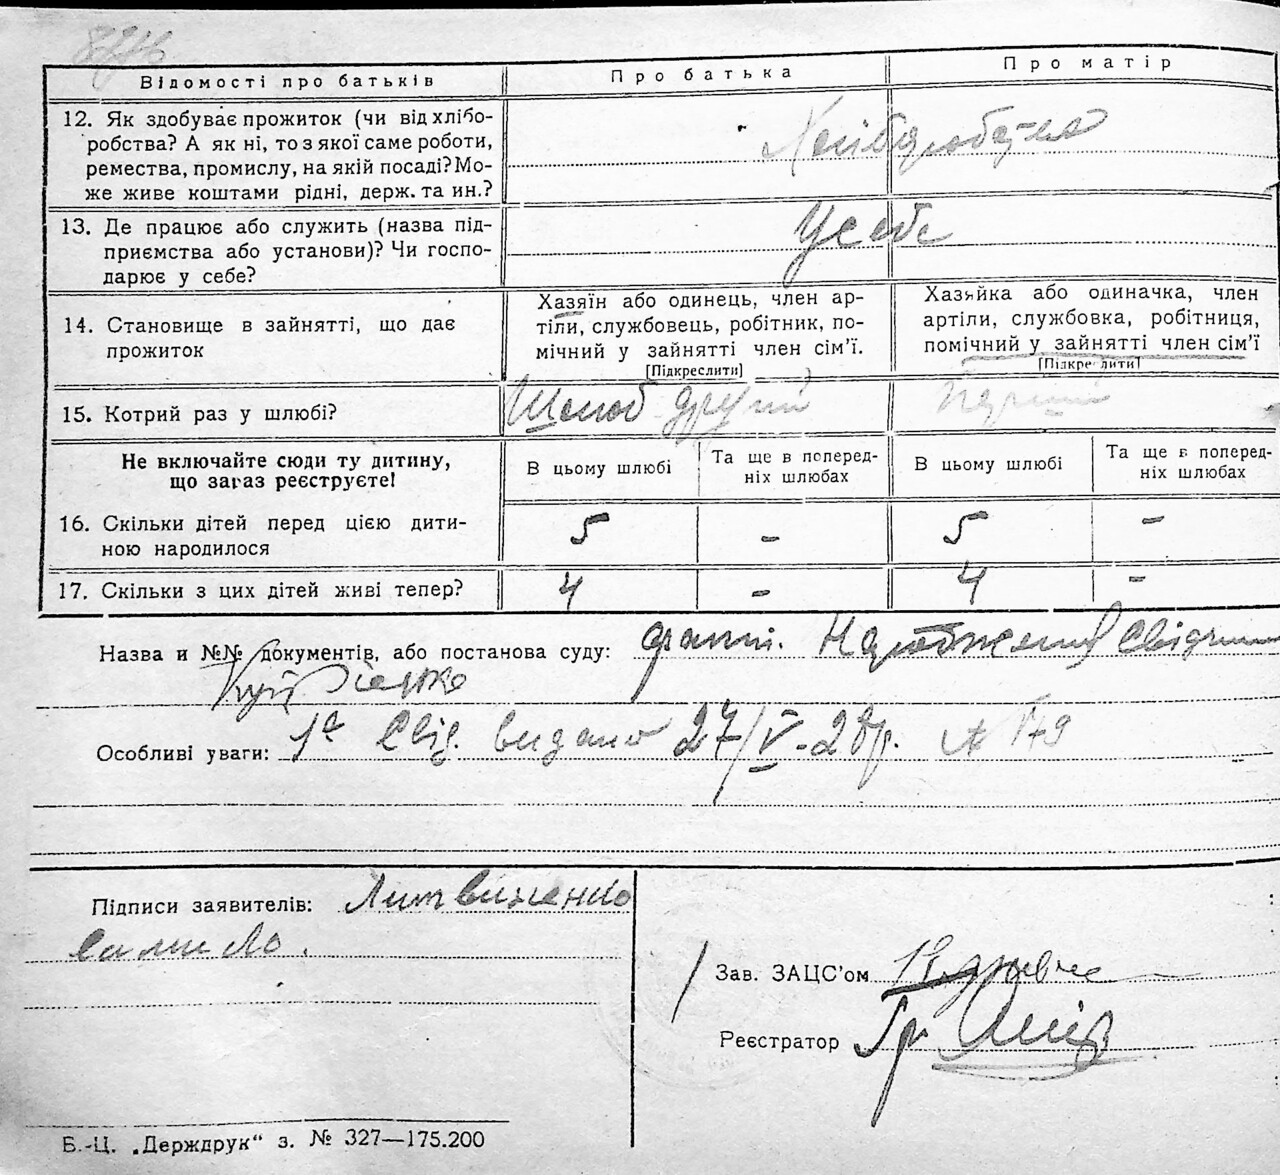 Відомості про батьків
Про батька
Про матір
12. Як здобуває прожиток (чи від хлібо-
робства? А як ні, то з якої саме роботи,
ремества, промислу, на якій посаді? Мо-
же живе коштами рідні, держ. та ин.?
13. Де працює або служить (назва під-
приємства або установи)? Чи госпо-
дарює у себе?
У себе
14. Становище в зайнятті, що дає
прожиток
Хазяїн або одинець, член ар-
тіли, службовець, робітник, по-
мічний у зайнятті член сім'ї.
[Підкреслити]
Хазяйка або одиначка, член
артіли, службовка, робітниця,
помічний у зайнятті член сім'ї
[Підкреслити]
15. Котрий раз у шлюбі?
Шлюб другий
Перший
Не включайте сюди ту дитину,
що зараз реєструєте!
В цьому шлюбі
Та ще в поперед-
ніх шлюбах
В цьому шлюбі
Та ще в поперед-
ніх шлюбах
16. Скільки дітей перед цією дити-
ною народилося
5
-
5
-
17. Скільки з цих дітей живі тепер?
4
-
4
-
Назва и №№ документів, або постанова суду:
Особливі уваги: Свід. видано 27/V-28р. № 179
Підписи заявителів: Литвиненко
Самило.
Зав. ЗАЦС'ом
Реєстратор
Б.-Ц. „Держдрук“ з. № 327—175.200